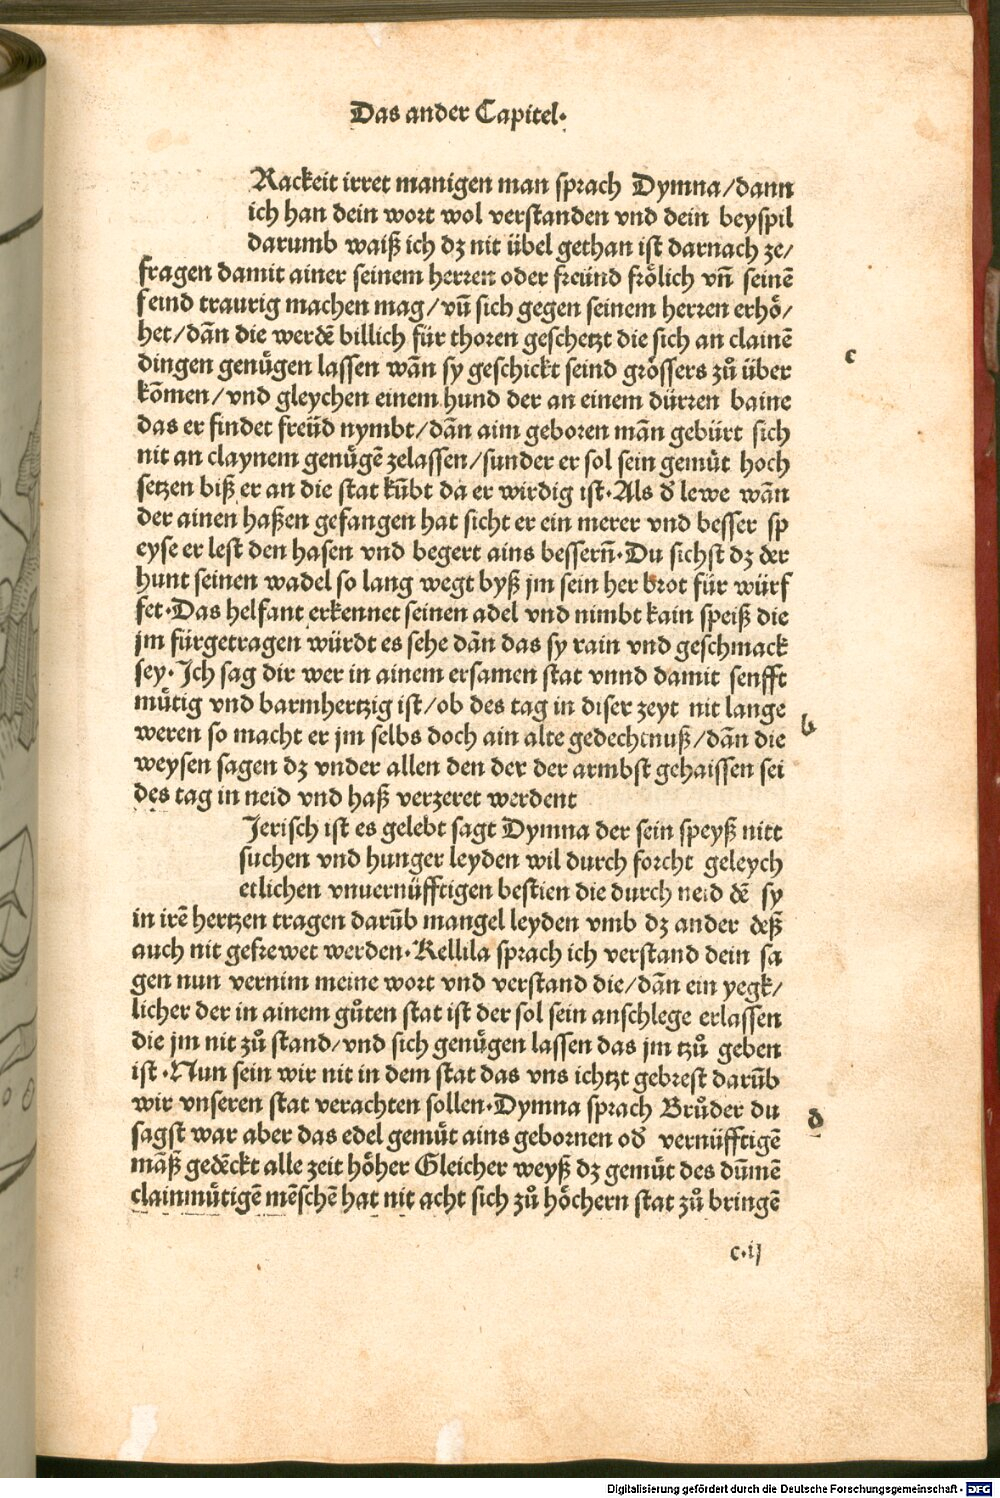 Das ander Capitel·
Rackeit irret manigen man sprach Dymna/dann
ich han dein wort wol verstanden vnd dein beyspil
darumb waiß ich dz nit übel gethan ist darnach ze/
fragen damit ainer seinem herren oder freünd frölich vñ seinē
feind traurig machen mag/vñ sich gegen seinem herren erhö/
het/dān die werdē billich für thoren geschetzt die sich an clainē
dingen genuͤgen lassen wān sy geschickt seind grössers zuͦ über
kōmen/vnd gleychen einem hund der an einem dürren baine
das er findet freüd nymbt/dān aim geboren mān gebürt sich
nit an claynem genuͤgē zelassen/sunder er sol sein gemuͤt hoch
setzen biß er an die stat kūbt da er wirdig ist·Als d̄ lewe wān
der ainen haßen gefangen hat sicht er ein merer vnd besser sp
eyse er lest den hasen vnd begert ains bessern̄·Du sichst dz der
hunt seinen wadel so lang wegt byß jm sein her brot für würf
fet·Das helfant erkennet seinen adel vnd nimbt kain speiß die
jm fürgetragen würdt es sehe dān das sy rain vnd geschmack
sey·Ich sag dir wer in ainem ersamen stat vnnd damit senfft
muͤtig vnd barmhertzig ist/ob des tag in diser zeyt nit lange
weren so macht er jm selbs doch ain alte gedechtnuß/dān die
weysen sagen dz vnder allen den der der armbst gehaissen sei
des tag in neid vnd haß verzeret werdent
Jerisch ist es gelebt sagt Dymna der sein speyß nitt
suchen vnd hunger leyden wil durch forcht geleych
etlichen vnuernüfftigen bestien die durch neid dē sy
in irē hertzen tragen darūb mangel leyden vmb dz ander deß
auch nit gefrewet werden·Kellila sprach ich verstand dein sa
gen nun vernim meine wort vnd verstand die/dān ein yegk/
licher der in ainem guͦten stat ist der sol sein anschlege erlassen
die jm nit zuͦ stand/vnd sich genuͤgen lassen das jm tzuͦ geben
ist·Nun sein wir nit in dem stat das vns ichtzt gebrest darūb
wir vnseren stat verachten sollen·Dymna sprach Bruͦder du
sagst war aber das edel gemuͤt ains gebornen od̄ vernüfftigē
māß gedēckt alle zeit höher Gleicher weyß dz gemuͤt des dūmē
clainmuͤtigē mēschē hat nit acht sich zuͦ höchern stat zuͦ bringē
c
b
d
c·ij
Digitalisierung gefördert durch die Deutsche Forschungsgemeinschaft - DFG